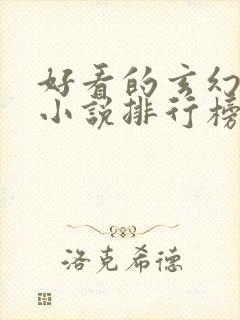 好看的玄幻
小说排行榜
洛克希德